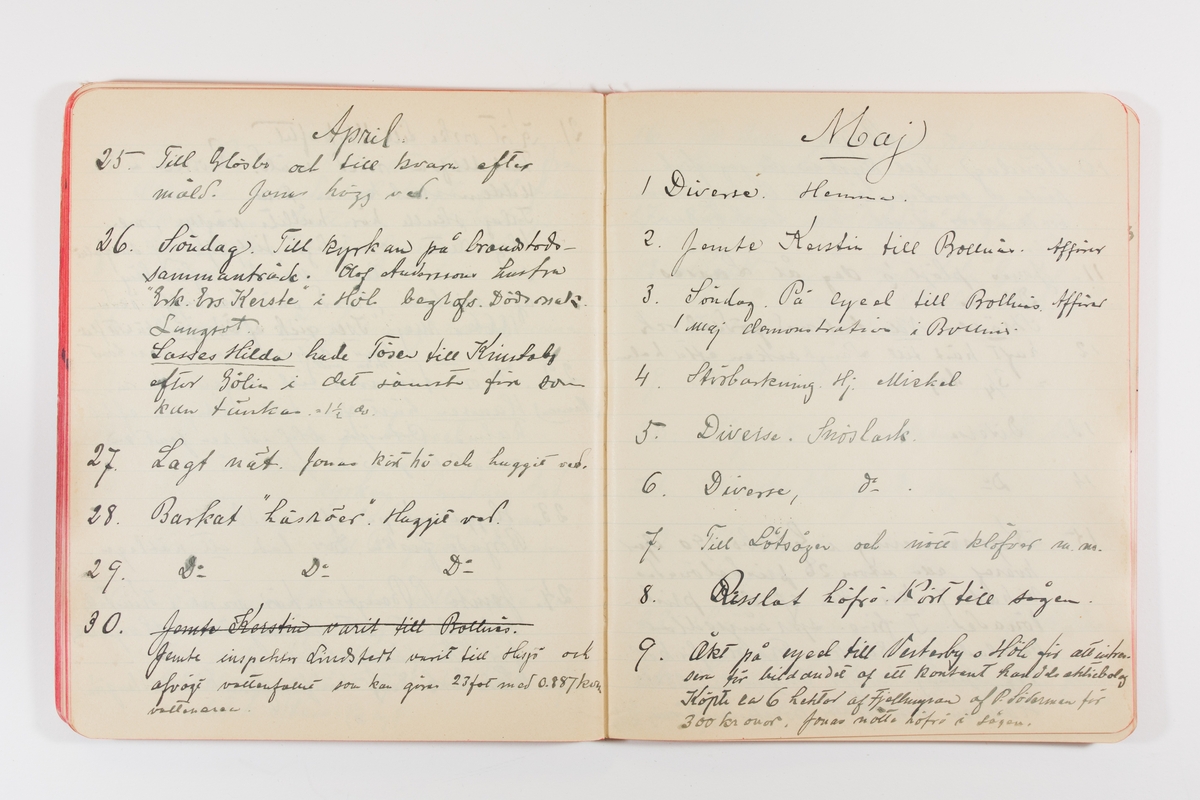 April.
25 Till Glösbo och till kvarn efter
mäld. Jonas högg ved.
26. Söndag. Till kyrkan på brandstods-
sammanträde. Olof Anderssons hustru
"Erk. Ers Kerste" i Höle begrofs. Dödsorsak.
Lungsot.
Lasses Hilda hade Tösen till Kinstaby
efter Gölin i det sämsta före som
kan tänkas.
27. Lagt nät. Jonas kört hö och huggit ved.
28. Barkat "hässjöer". Huggit ved.
29. Do Do Do
30. Jemte Kerstin varit till Bollnäs.
Jemte inspektor Lindstedt varit till Hesjö och
afvägt vattenfallet som kan göras 23 fot med 0.887 kvm
vattenarea.
Maj
1 Diverse. Hemma.
2. Jemte Kerstin till Bollnäs. Affärer
3. Söndag. På cycel till Bollnäs. Affärer
1 Maj demonstration i Bollnäs.
4. Störbarkning. Hj. Mickel
5. Diverse. Snöslask.
6. Diverse, do.
7. Till Lötsågen och nött klöfver m. m.
8. Resslat höfrö. Kört till sågen.
9. Åkt på cycel till Vesterby o Höle för att intres-
sera för bildandet af ett kontant handelsaktiebolag
Köpte ca 6 hektar af Fjellmyran af P. Söderman för
300 kronor. Jonas nötte höfrö i sågen.